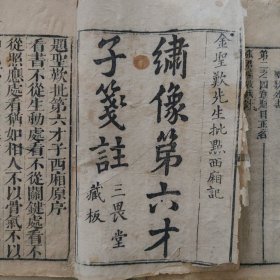 第二之四章題目正名
金聖歎先生批點西廂記
繡像第六才
子箋註
三畏堂
藏板
題聖歎批第六才子西廂原序
看書不從生動處看不從關鍵處看不
從照應處看猶如相人不以骨氣不以